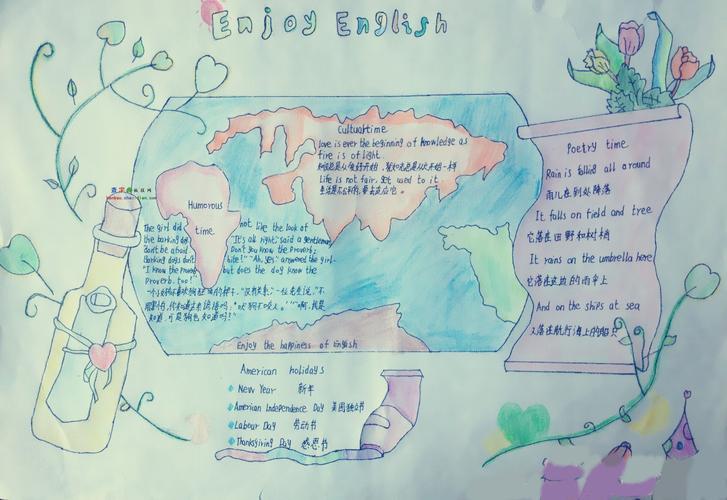 Enjoy English
Cultualtime
Love is ever the beginning of knowledge as
fire is of light.
Life is not fair. get used to it
Humorous
time.
The girl did not like the look of
the barking dog "It's all right," said a gentleman,
don't be afraid Don't you know the Proverb:
Barking dogs don't bite!" "Ah, yes," answered the girl.
"I know the but does the dog know the
Proverb. too!
Enjoy the happiness of English
Poetry time
Rain is falling all around
雨儿在到处降落
It falls on field and tree
它落在田野和树梢
It rains on the umbrella here
它落在这边的雨伞上
And on the ships at sea
又落在航行海上的船只
American holidays
New Year 新年
American Independence Day 美国独立节
Labour Day 劳动节
Thanksgiving Day 感恩节